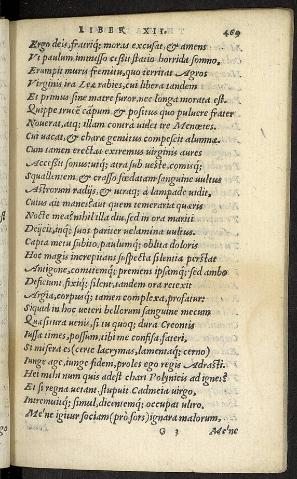 LIBER XII. 469
Ergo deis, fratriq; moras excusat, & amens
Vt paulum immisso cessit statio horrida somno,
Erumpit muru fremitu, quo territat Agros
Virginis ira Leæ rabies, cui libera tandem
Et primus sine matre furor. nec longa morata est.
Quippe trucē cāpum, & positus quo puluere frater
Nouerat, atq; illam contrà uidet ire Menœtes.
Cui uacat, & charæ gemitus compescit alumnæ.
Cum tamen erectas extremus uirginis aures
Accessit sonus: utq; atra sub ueste, comisq;
Squallentem, & crasso fœdatam sanguine uultus
Astrorum radijs, & utraq; a lampade uidit,
Cuius ait manes? aut quem temeraria quæris
Nocte mea? nihil illa diu. sed in ora mariti
Deijcit, inq; suos pariter uelamina uultus.
Capta metu subito, paulumq; oblita doloris
Hoc magis increpitans suspecta silentia perstat
Antigone, comitemq; premens ipsamq; sed ambo
Deficiunt. fixiq; silent. tandem ora retexit
Argia, corpusq; tamen complexa, profatur:
Siquid in hoc ueteri bellorum sanguine mecum
Quæsitura uenis, si tu quoq; dura Creontis
Iussa times, possum, tibi me confisa, fateri.
Si misera es (certe lacrymas, lamentaq; cerno)
Iunge age, iunge fidem, proles ego regis Adrasti.
Hei mihi num quis adest chari Polynicis ad ignes?
Et si regna uetant. stupuit Cadmeia uirgo,
Intremuitq; simul, dicentemq; occupat ultro.
Me'ne igitur sociam (prò fors) ignara malorum,
G 3 Me'ne